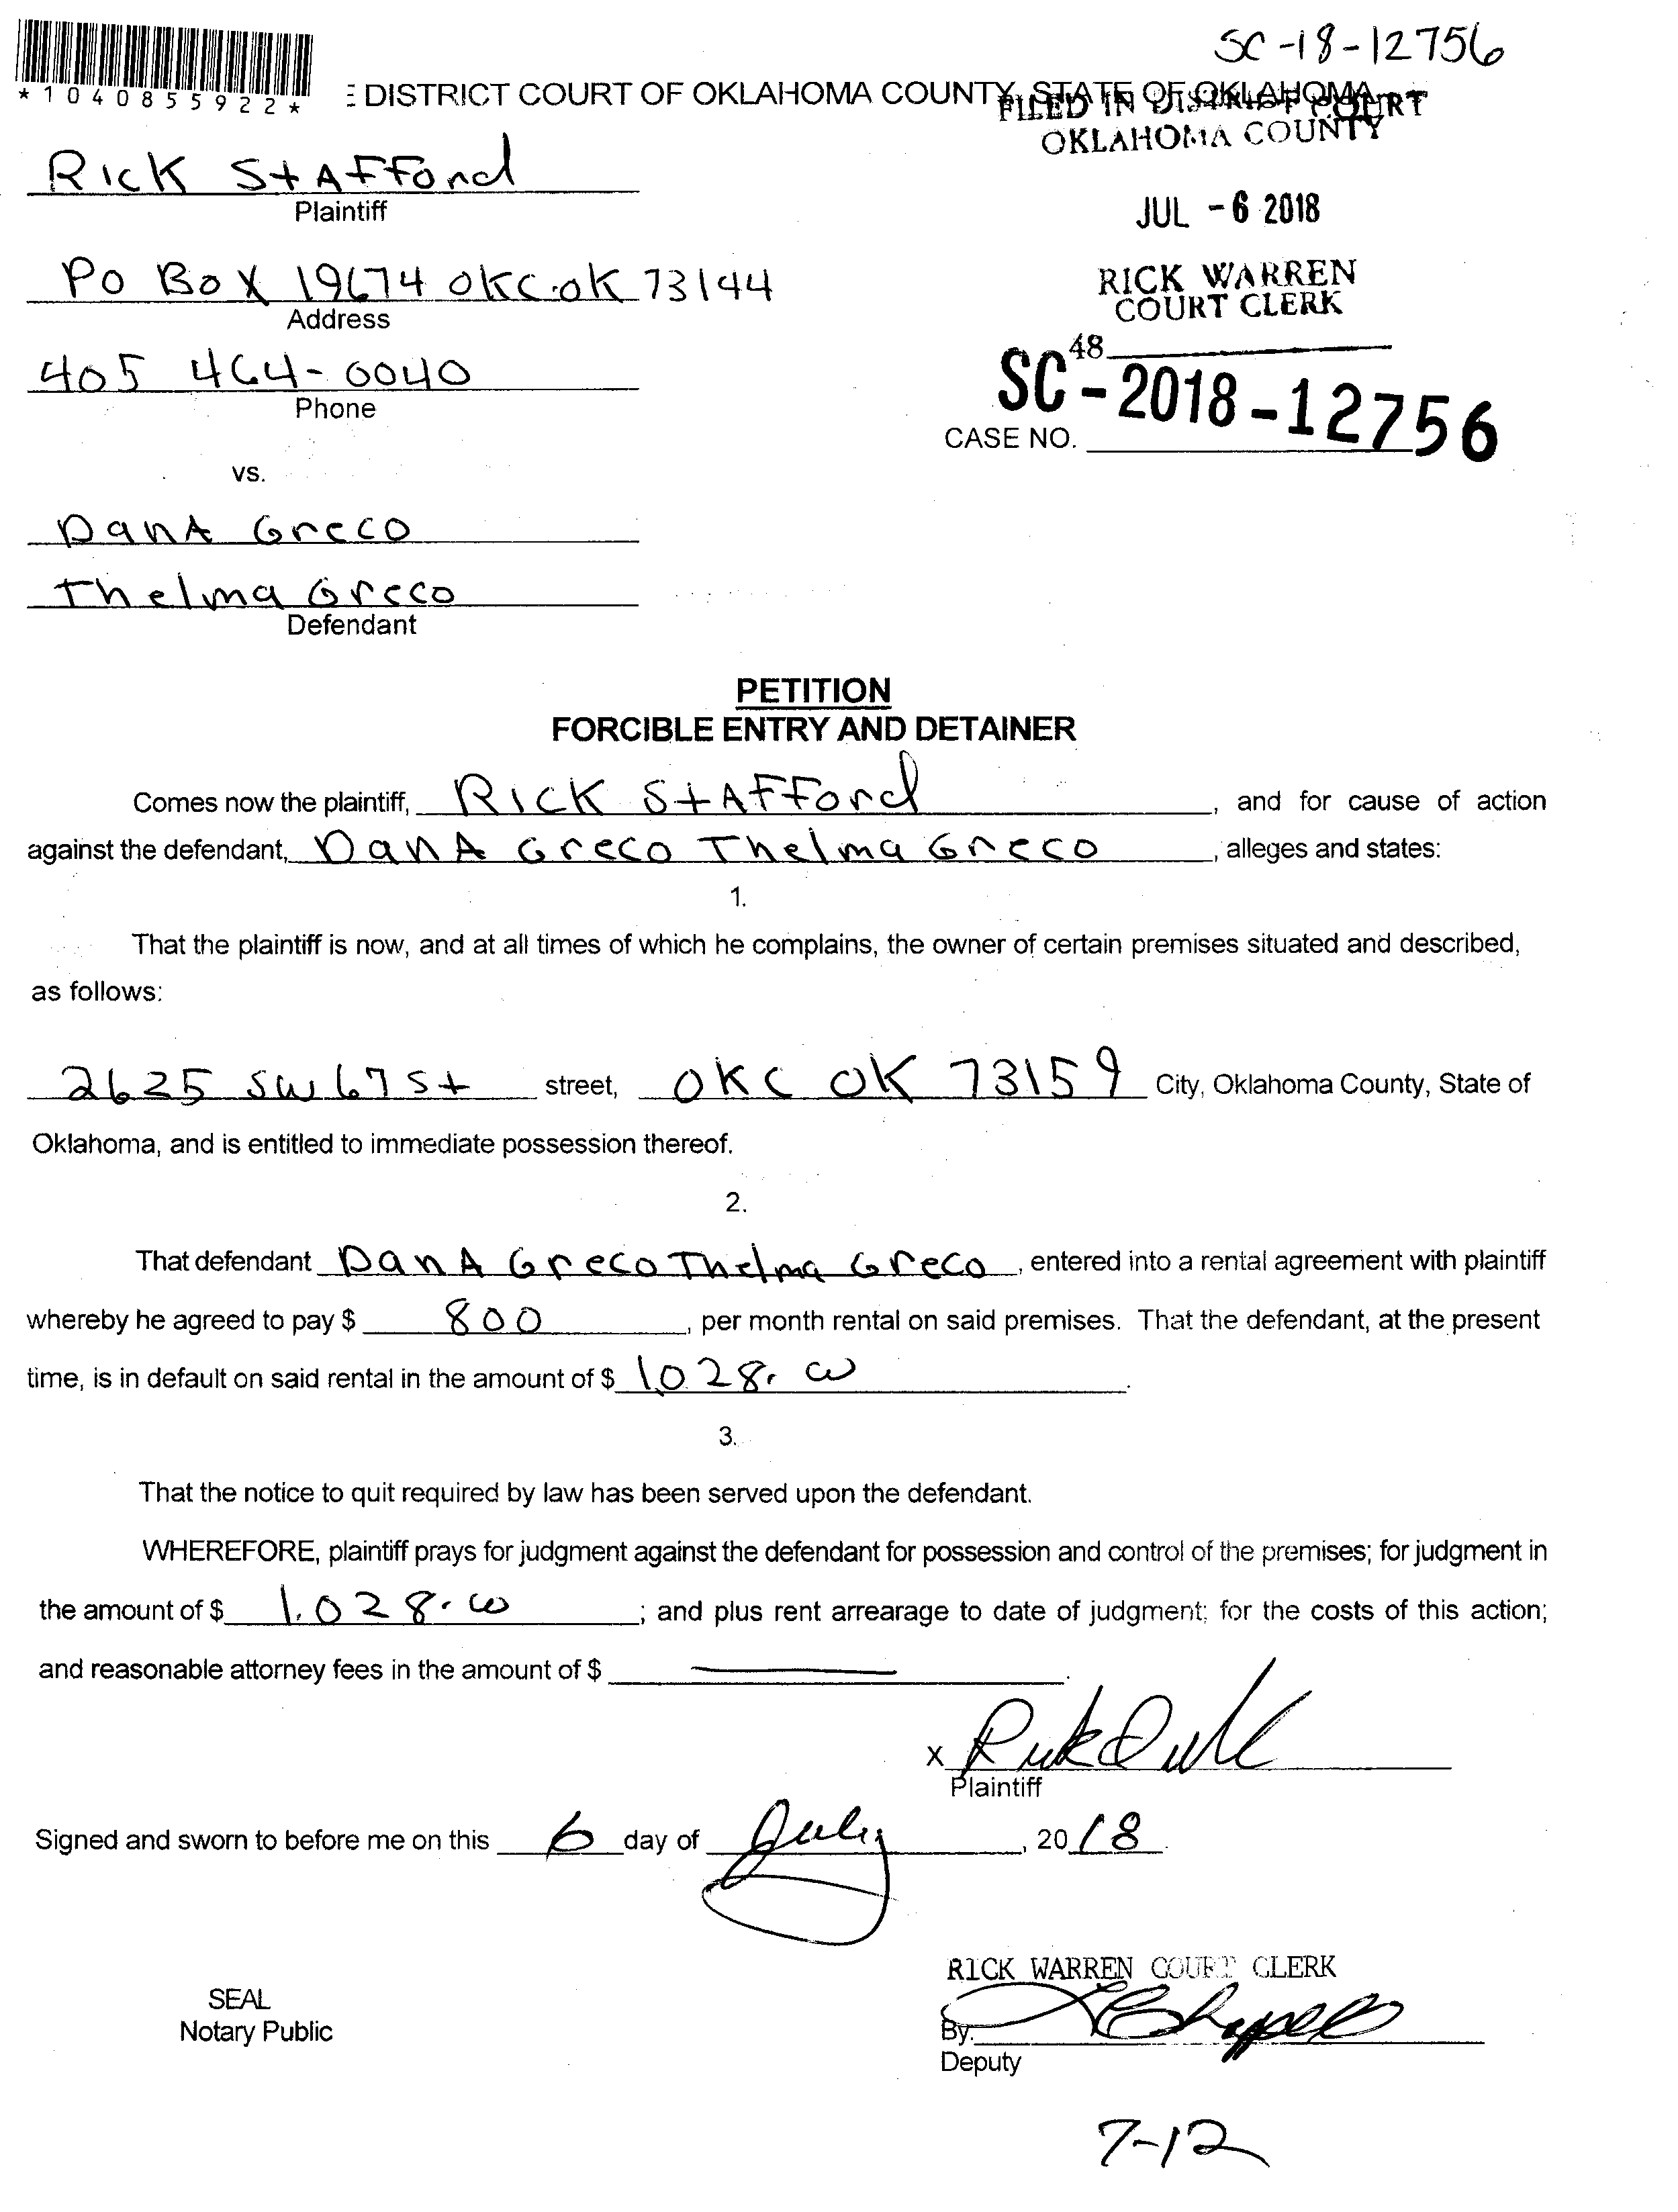 SC-18-12756
*1040855922*
E DISTRICT COURT OF OKLAHOMA COUNTY, STATE OF OKLAHOMA
FILED IN DISTRICT COURT
OKLAHOMA COUNTY
Rick Stafford
Plaintiff
JUL - 6 2018
PO Box 19674 OKC.OK 73144
Address
RICK WARREN
COURT CLERK
405 464-0040
Phone
48
SC-2018-12756
CASE NO.
vs.
Dan A Greco
Thelma Greco
Defendant
PETITION
FORCIBLE ENTRY AND DETAINER
Comes now the plaintiff, Rick Stafford, and for cause of action
against the defendant, Dan A Greco Thelma Greco, alleges and states:
1.
That the plaintiff is now, and at all times of which he complains, the owner of certain premises situated and described,
as follows:
2625 SW 67 St street, OKC OK 73159 City, Oklahoma County, State of
Oklahoma, and is entitled to immediate possession thereof.
2.
That defendant Dan A Greco Thelma Greco, entered into a rental agreement with plaintiff
whereby he agreed to pay $ 800, per month rental on said premises. That the defendant, at the present
time, is in default on said rental in the amount of $ 1,028.00.
3.
That the notice to quit required by law has been served upon the defendant.
WHEREFORE, plaintiff prays for judgment against the defendant for possession and control of the premises; for judgment in
the amount of $ 1,028.00; and plus rent arrearage to date of judgment; for the costs of this action;
and reasonable attorney fees in the amount of $ —.
x
Plaintiff
Signed and sworn to before me on this 6 day of July, 2018.
RICK WARREN COURT CLERK
SEAL
Notary Public
By:
Deputy
7-12